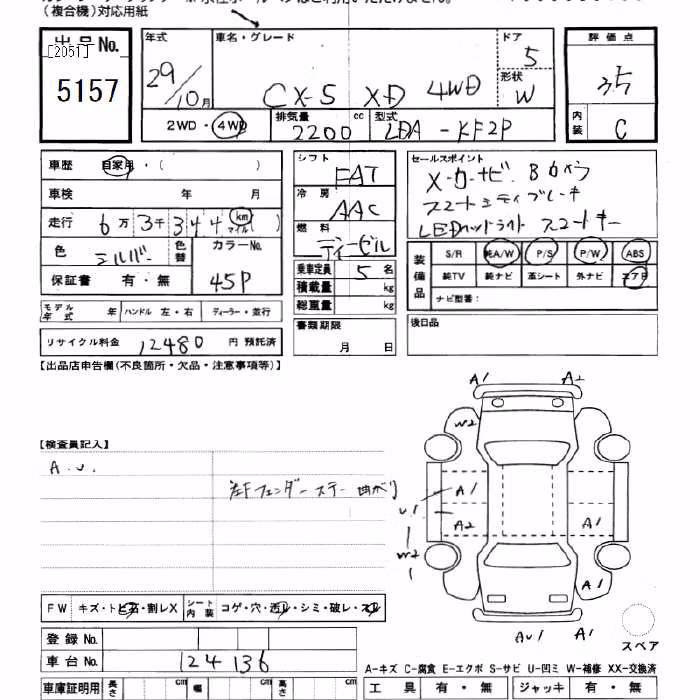 (複合機)対応用紙
出品No.
[2051]
5157
年式
29/10月
車名・グレード
CX-5 XD 4WD
ドア
5
形状
W
評価点
3.5
内装
C
2WD・4WD
排気量 cc
2200
型式
LDA-KF2P
車歴 自家用・( )
車検 年 月
走行 6万3千344 km マイル( )
色 シルバー
色替
カラーNo.
45P
保証書 有・無
シフト
FAT
冷房
AAC
燃料
ディーゼル
乗車定員 5 名
積載量 kg
総重量 kg
書類期限
月 日
セールスポイント
メーカーナビ Bカメラ
スマートシティブレーキ
LEDヘッドライト スマートキー
装備品
S/R 純A/W P/S P/W ABS
純TV 純ナビ 革シート 外ナビ エアB
ナビ型番:
後日品
モデル年式 年 ハンドル 左・右 ディーラー・並行
リサイクル料金 12480 円 預託済
【出品店申告欄(不良箇所・欠品・注意事項等)】
【検査員記入】
A.U.
左Fフェンダーステー曲がり
A1 A2
W2
A1
U1
A2
A1
W2
A1
AU1 A1
スペア
FW キズ・トビ石・割レX シート内装 コゲ・穴・汚レ・シミ・破レ・スレ
登録No.
車台No. 124136
A-キズ C-腐食 E-エクボ S-サビ U-凹ミ W-補修 XX-交換済
車庫証明用 長さ cm 幅 cm 高さ cm
工具 有・無 ジャッキ 有・無